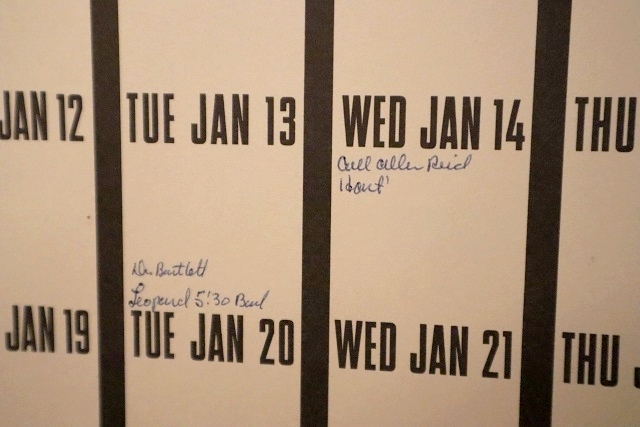 JAN 12 TUE JAN 13 WED JAN 14 THU
Call Allen Reid
Dr. Bartlett
Leopard 5:30
JAN 19 TUE JAN 20 WED JAN 21 THU J